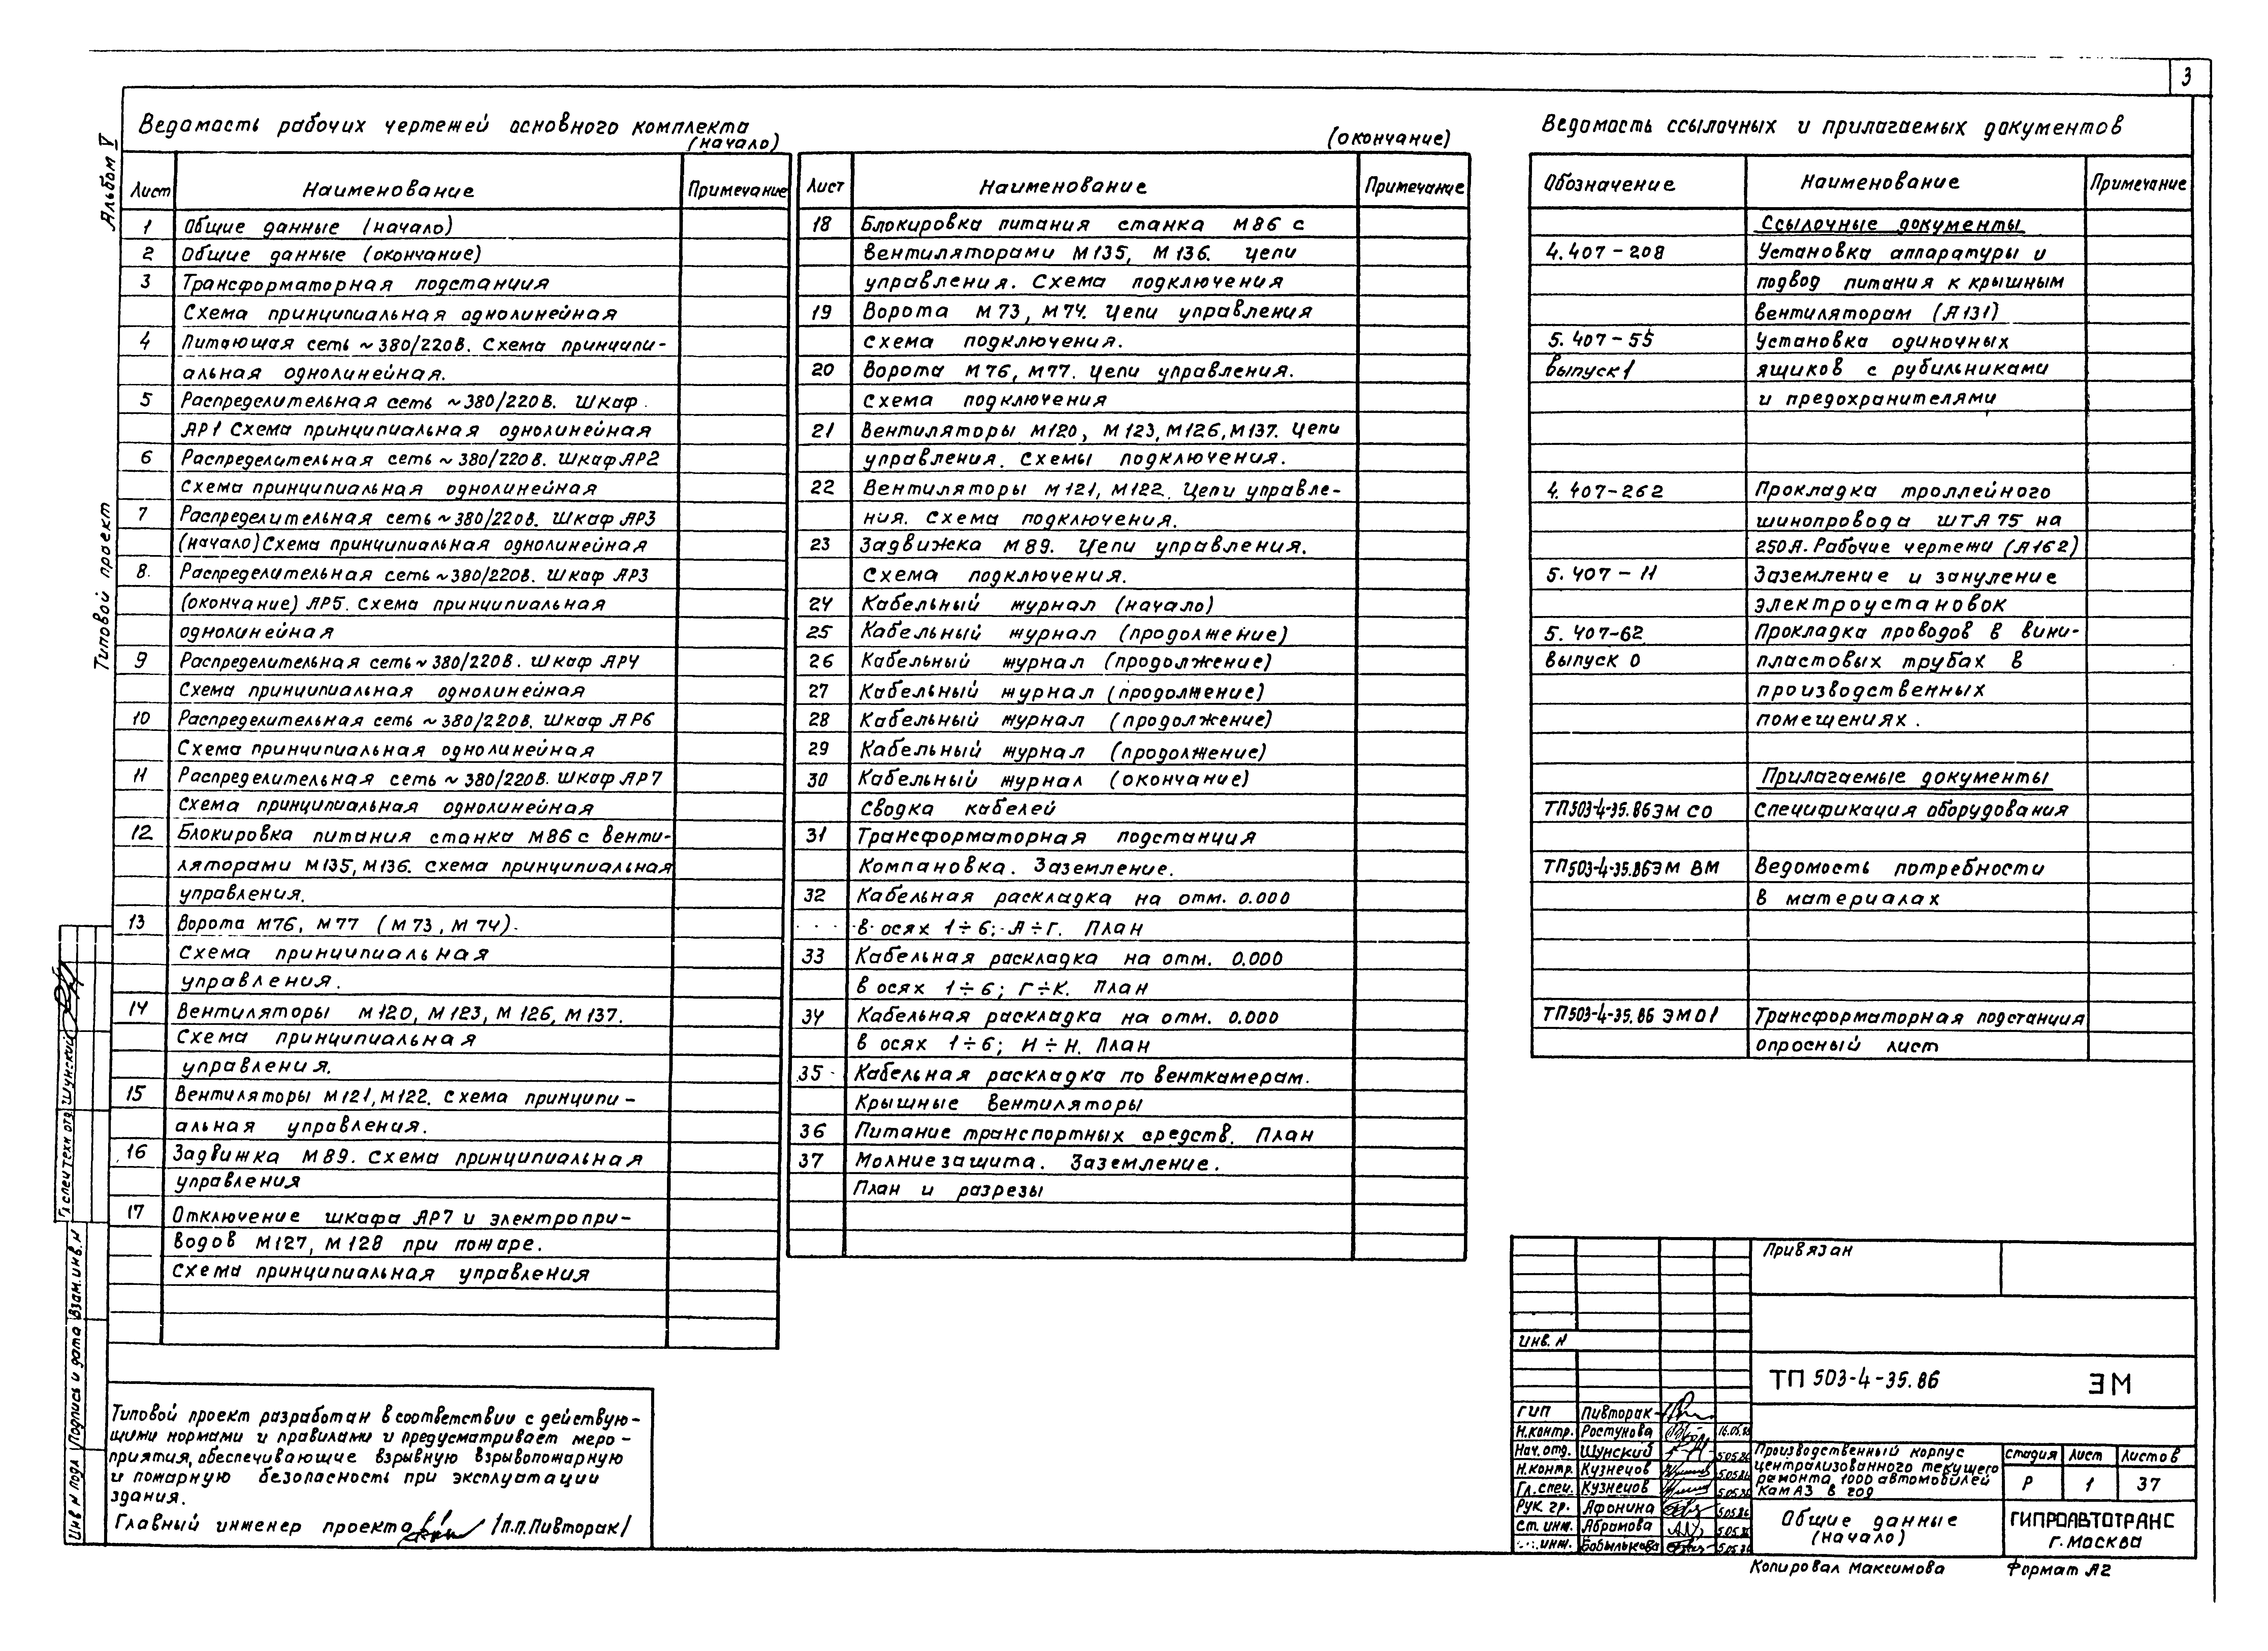 3
Альбом V
Типовой проект
Ведомость рабочих чертежей основного комплекта
(начало)
Лист Наименование Примечание
1 Общие данные (начало)
2 Общие данные (окончание)
3 Трансформаторная подстанция
Схема принципиальная однолинейная
4 Питающая сеть ~380/220В. Схема принципи-
альная однолинейная.
5 Распределительная сеть ~380/220В. Шкаф
ЯР1 Схема принципиальная однолинейная
6 Распределительная сеть ~380/220В. Шкаф ЯР2
Схема принципиальная однолинейная
7 Распределительная сеть ~380/220В. Шкаф ЯР3
(начало) Схема принципиальная однолинейная
8 Распределительная сеть ~380/220В. Шкаф ЯР3
(окончание) ЯР5. Схема принципиальная
однолинейная
9 Распределительная сеть ~380/220В. Шкаф ЯР4
Схема принципиальная однолинейная
10 Распределительная сеть ~380/220В. Шкаф ЯР6
Схема принципиальная однолинейная
11 Распределительная сеть ~380/220В. Шкаф ЯР7
Схема принципиальная однолинейная
12 Блокировка питания станка М86 с венти-
ляторами М135, М136. Схема принципиальная
управления.
13 Ворота М76, М77 (М73, М74).
Схема принципиальная
управления.
14 Вентиляторы М120, М123, М126, М137.
Схема принципиальная
управления.
15 Вентиляторы М121, М122. Схема принципи-
альная управления.
16 Задвижка М89. Схема принципиальная
управления
17 Отключение шкафа ЯР7 и электропри-
водов М127, М128 при пожаре.
Схема принципиальная управления
(окончание)
Лист Наименование Примечание
18 Блокировка питания станка М86 с
вентиляторами М135, М136. Цепи
управления. Схема подключения
19 Ворота М73, М74. Цепи управления
Схема подключения.
20 Ворота М76, М77. Цепи управления.
Схема подключения
21 Вентиляторы М120, М123, М126, М137. Цепи
управления. Схемы подключения.
22 Вентиляторы М121, М122. Цепи управле-
ния. Схема подключения.
23 Задвижка М89. Цепи управления.
Схема подключения.
24 Кабельный журнал (начало)
25 Кабельный журнал (продолжение)
26 Кабельный журнал (продолжение)
27 Кабельный журнал (продолжение)
28 Кабельный журнал (продолжение)
29 Кабельный журнал (продолжение)
30 Кабельный журнал (окончание)
Сводка кабелей
31 Трансформаторная подстанция
Компановка. Заземление.
32 Кабельная раскладка на отм. 0.000
в осях 1÷6; А÷Г. План
33 Кабельная раскладка на отм. 0.000
в осях 1÷6; Г÷К. План
34 Кабельная раскладка на отм. 0.000
в осях 1÷6; И÷Н. План
35 Кабельная раскладка по венткамерам.
Крышные вентиляторы
36 Питание транспортных средств. План
37 Молниезащита. Заземление.
План и разрезы
Ведомость ссылочных и прилагаемых документов
Обозначение Наименование Примечание
Ссылочные документы
4.407-208 Установка аппаратуры и
подвод питания к крышным
вентиляторам (А131)
5.407-55 Установка одиночных
выпуск 1 ящиков с рубильниками
и предохранителями
4.407-262 Прокладка троллейного
шинопровода ШТА 75 на
250А. Рабочие чертежи (А162)
5.407-11 Заземление и зануление
электроустановок
5.407-62 Прокладка проводов в вини-
выпуск 0 пластовых трубах в
производственных
помещениях.
Прилагаемые документы
ТП503-4-35.86 ЭМ СО Спецификация оборудования
ТП503-4-35.86 ЭМ ВМ Ведомость потребности
в материалах
ТП503-4-35.86 ЭМ 01 Трансформаторная подстанция
опросный лист
Типовой проект разработан в соответствии с действую-
щими нормами и правилами и предусматривает меро-
приятия, обеспечивающие взрывную взрывопожарную
и пожарную безопасность при эксплуатации
здания.
Главный инженер проекта /П.П.Пивторак/
Гл спец техн отд Шунский
Инв N подл Подпись и дата Взам.инв.N
Привязан
Инв. N
ТП 503-4-35.86 ЭМ
ГИП Пивторак
Н.контр. Ростунова 16.05.86
Нач. отд. Шунский 5.05.86
Н.контр. Кузнецов 5.05.86
Гл.спец. Кузнецов 5.05.86
Рук. гр. Афонина 5.05.86
Ст. инж. Абрамова 5.05.86
инж. Бобылькова 5.05.86
Производственный корпус
централизованного текущего
ремонта 1000 автомобилей
КамАЗ в год
Стадия Лист Листов
Р 1 37
Общие данные
(начало)
ГИПРОАВТОТРАНС
г. Москва
Копировал Максимова Формат А2